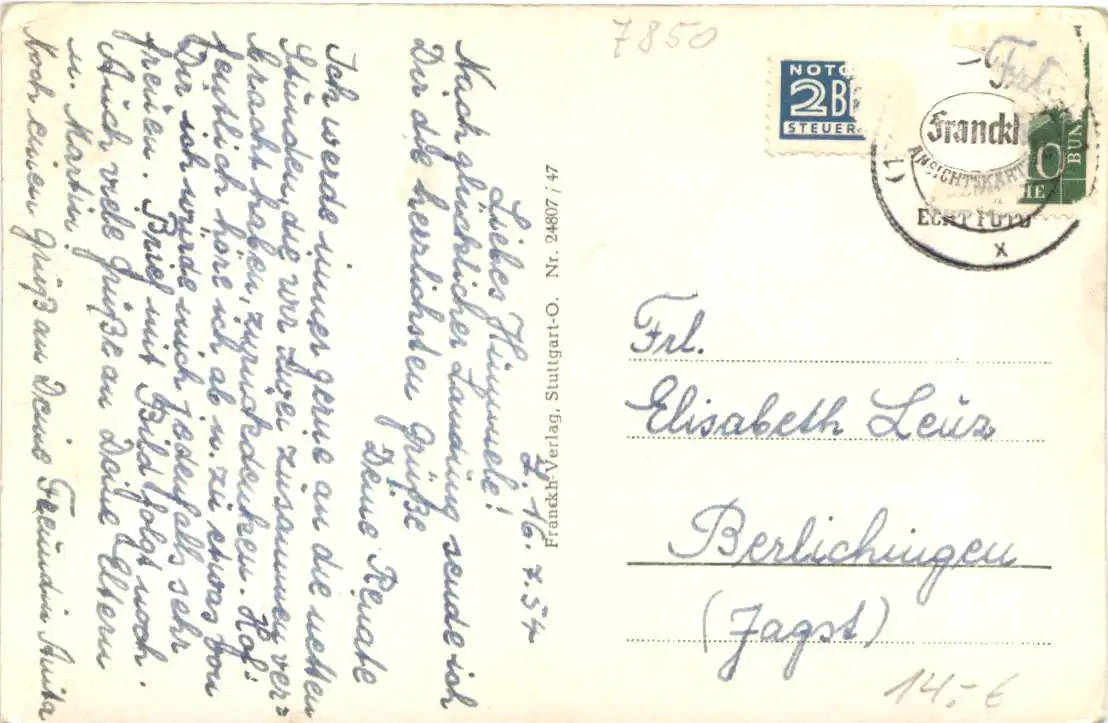 7850
NOTO
2 BE
STEUER
Franckh
ANSICHTSKART
ECHT FOTO
BUN
Frl.
Z. 16.7.54
Liebes Hümmele!
Nach glücklicher Landung sende ich
Dir die herzlichsten Grüße
Deine Renate
Ich werde immer gerne an die netten
Stunden, die wir zwei zusammen ver=
bracht haben, zurückdenken. Hof=
fentlich höre ich ab u. zu etwas von
Dir ich würde mich jedenfalls sehr
freuen. Brief mit Bild folgt noch.
Auch viele Grüße an Deine Eltern
u. Martin.
Noch einen Gruß an Deine Freundin Anita
Franckh-Verlag, Stuttgart-O. Nr. 24807/47
Frl.
Elisabeth Leuz
Berlichingen
(Jagst)
14,- €